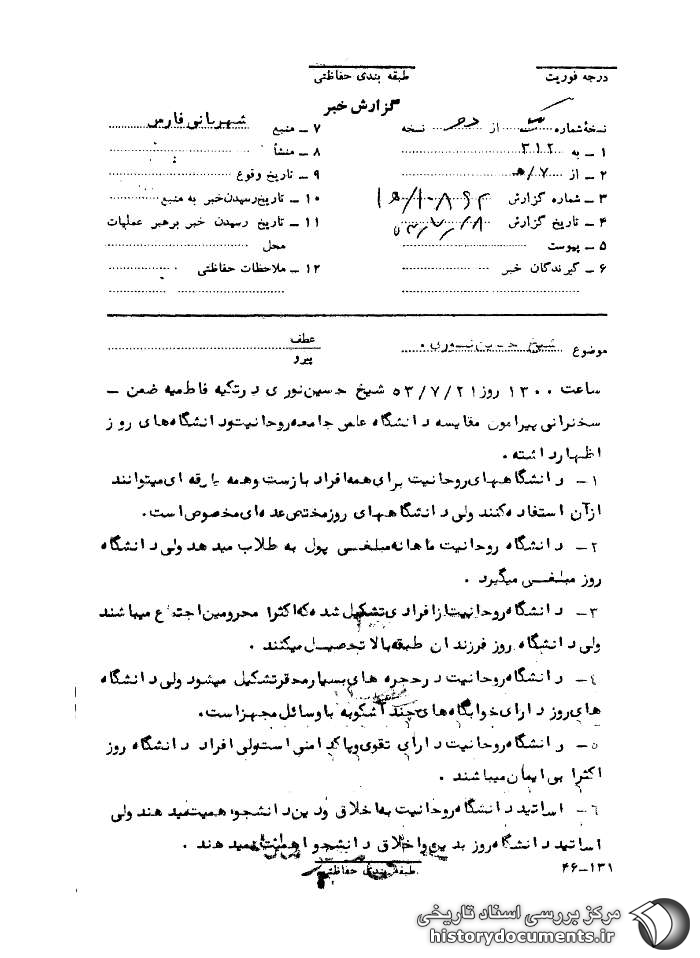 درجه فوریت
طبقه بندی حفاظتی
گزارش خبر
نسخه شماره یک از دو نسخه
۱ ـ به ۳۱۲
۲ ـ از ۷/هـ
۳ ـ شماره گزارش
۴ ـ تاریخ گزارش
۵ ـ پیوست
۶ ـ گیرندگان خبر
۷ ـ منبع شهربانی فارس
۸ ـ منشأ
۹ ـ تاریخ وقوع
۱۰ ـ تاریخ رسیدن خبر به منبع
۱۱ ـ تاریخ رسیدن خبر برهبر عملیات
محل
۱۲ ـ ملاحظات حفاظتی
موضوع شیخ حسین نوری .
عطف
پیرو
ساعت ۱۳۰۰ روز ۵۳/۷/۲۱ شیخ حسین نوری در تکیه فاطمیه ضمن ـ
سخنرانی پیرامون مقایسه دانشگاه علمی جامعه روحانیت ودانشگاه های روز
اظهار داشته .
۱- دانشگاههای روحانیت برای همه افراد بازست وهمه بارقه ای میتوانند
ازآن استفاده کنند ولی دانشگاههای روز مختص عده ای مخصوص است .
۲- دانشگاه روحانیت ماهانه مبلغی پول به طلاب میدهد ولی دانشگاه
روز مبلغی میگیرد .
۳- دانشگاه روحانیت از افرادی تشکیل شده که اکثرا محرومین اجتماع میباشند
ولی دانشگاه روز فرزندان طبقه بالا تحصیل میکنند .
٤- دانشگاه روحانیت در حجره های بسیار محقر تشکیل میشود ولی دانشگاه
های روز دارای خوابگاه های چند آشکوبه با وسائل مجهز است .
۵- دانشگاه روحانیت دارای تقوی وپاکدامنی است ولی افراد دانشگاه روز
اکثرا بی ایمان میباشند .
٦- اساتید دانشگاه روحانیت به اخلاق ودین دانشجو اهمیت میدهند ولی
اساتید دانشگاه روز بدین واخلاق دانشجو اهمیت نمیدهند .
طبقه بندی حفاظتی
۴۶-۱۳۱
مرکز بررسی اسناد تاریخی
historydocuments.ir